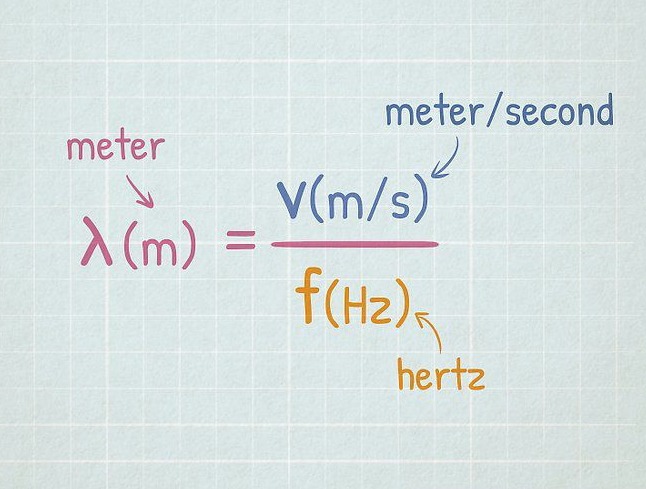 meter/second
meter
v(m/s)
λ(m) =
f(Hz)
hertz